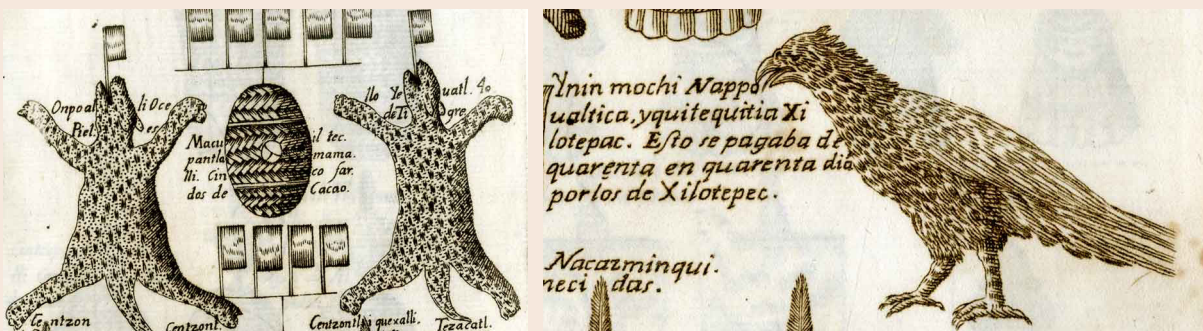 Onpoal li Oce
Piel es
Macu il tec.
pantla mama.
lli. Cin co far.
dos de Cacao.
Ilo Ye uatl. 40
deTi gre
Centzon
Centzontl.
Centzontli quexalli.
Tezacatl.
Ynin mochi Nappo
ualtica, yquitequitia Xi
lotepac. Esto se pagaba de
quarenta en quarenta dia
por los de Xilotepec.
Nacazminqui.
neci das.